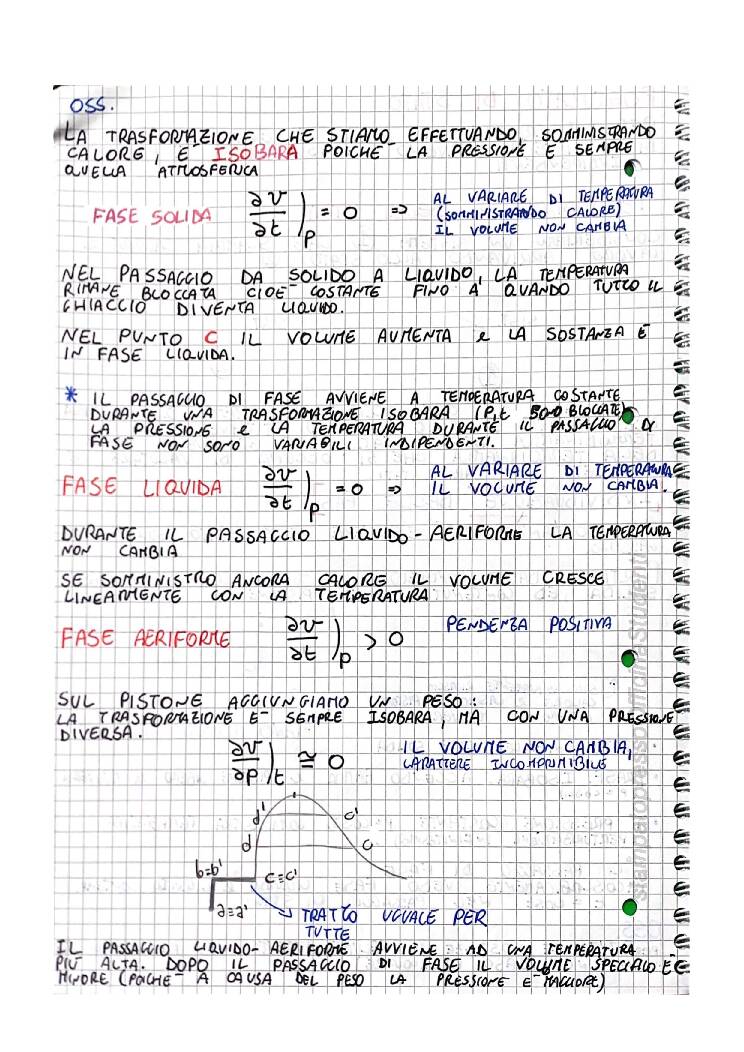 OSS.
LA TRASFORMAZIONE CHE STIAMO EFFETTUANDO, SOMMINISTRANDO
CALORE, E' ISOBARA POICHE' LA PRESSIONE E' SEMPRE
QUELLA ATMOSFERICA
FASE SOLIDA ∂v/∂t|p = 0 => AL VARIARE DI TEMPERATURA
(SOMMINISTRANDO CALORE)
IL VOLUME NON CAMBIA
NEL PASSAGGIO DA SOLIDO A LIQUIDO, LA TEMPERATURA
RIMANE BLOCCATA CIOE' COSTANTE FINO A QUANDO TUTTO IL
GHIACCIO DIVENTA LIQUIDO.
NEL PUNTO C IL VOLUME AUMENTA e LA SOSTANZA E'
IN FASE LIQUIDA.
* IL PASSAGGIO DI FASE AVVIENE A TEMPERATURA COSTANTE
DURANTE UNA TRASFORMAZIONE ISOBARA (P,t SONO BLOCCATE)
LA PRESSIONE e LA TEMPERATURA DURANTE IL PASSAGGIO DI
FASE NON SONO VARIABILI INDIPENDENTI.
FASE LIQUIDA ∂v/∂t|p = 0 => AL VARIARE DI TEMPERATURA
IL VOLUME NON CAMBIA.
DURANTE IL PASSAGGIO LIQUIDO-AERIFORME LA TEMPERATURA
NON CAMBIA
SE SOMMINISTRO ANCORA CALORE IL VOLUME CRESCE
LINEARMENTE CON LA TEMPERATURA
FASE AERIFORME ∂v/∂t|p > 0 PENDENZA POSITIVA
SUL PISTONE AGGIUNGIAMO UN PESO:
LA TRASFORMAZIONE E' SEMPRE ISOBARA, MA CON UNA PRESSIONE
DIVERSA.
∂v/∂p|t ≅ 0 IL VOLUME NON CAMBIA,
CARATTERE INCOMPRIMIBILE
d' c'
d c
b≡b' c≡c'
a≡a' TRATTO UGUALE PER
TUTTE
IL PASSAGGIO LIQUIDO-AERIFORME AVVIENE AD UNA TEMPERATURA
PIU' ALTA. DOPO IL PASSAGGIO DI FASE IL VOLUME SPECIFICO E'
MINORE (POICHE' A CAUSA DEL PESO LA PRESSIONE E' MAGGIORE)
stampatopressoofficineStudenti